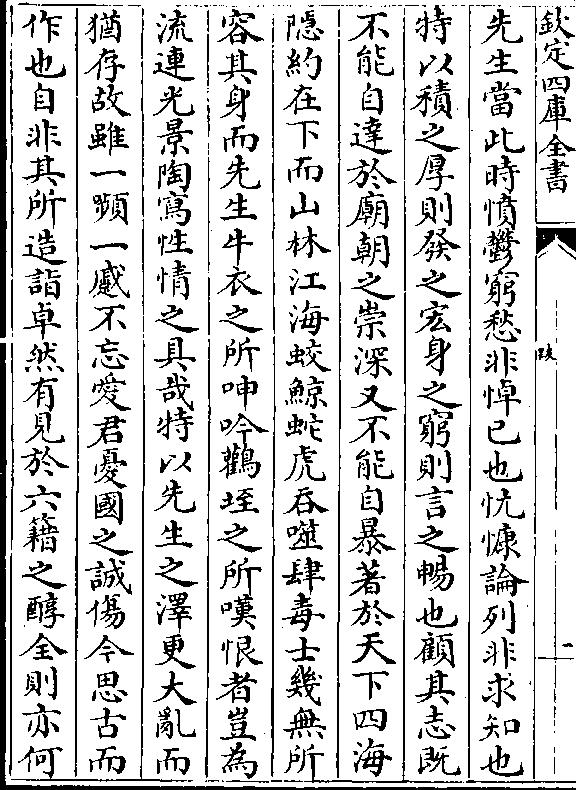 欽定四庫全書
跋
二
先生當此時憤鬱窮愁非悼已也忼慷論列非求知也
特以積之厚則發之宏身之窮則言之暢也顧其志既
不能自達於廟朝之崇深又不能自暴著於天下四海
隱約在下而山林江海蛟鯨蛇虎吞噬肆毒士幾無所
容其身而先生牛衣之所呻吟鸛垤之所嘆恨者豈為
流連光景陶寫性情之具哉特以先生之澤更大亂而
猶存故雖一嚬一慼不忘愛君憂國之誠傷今思古而
作也自非其所造詣卓然有見於六籍之醇全則亦何